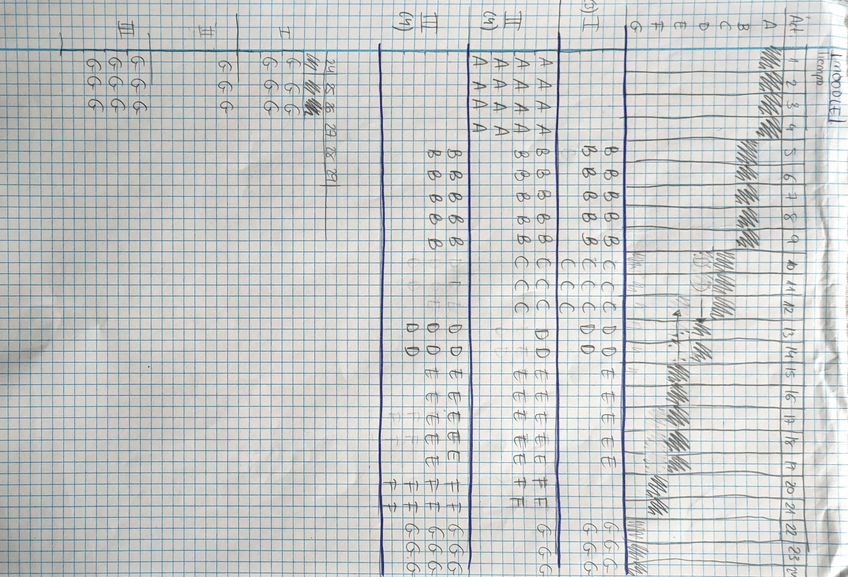 [MOODLE]
Tiempo
Act. 1 2 3 4 5 6 7 8 9 10 11 12 13 14 15 16 17 18 19 20 21 22 23
A
B
C
D
E
F
G
B B B B B C C C D D E E E E E G G G
I B B B B B C C C D D G G G
C C C
A A A A B B B B B C C C D D E E E E E F F G G G
II A A A A B B B B B C C C E E E E E F F
(4) A A A A
A A A A
B B B B B D D E E E E E F F G G G
III B B B B B D D E E E E E F F G G G
(4) D D F F G G G
F F
24 25 26 27 28 29
I G G G
G G G
II G G G
G G G
III G G G
G G G